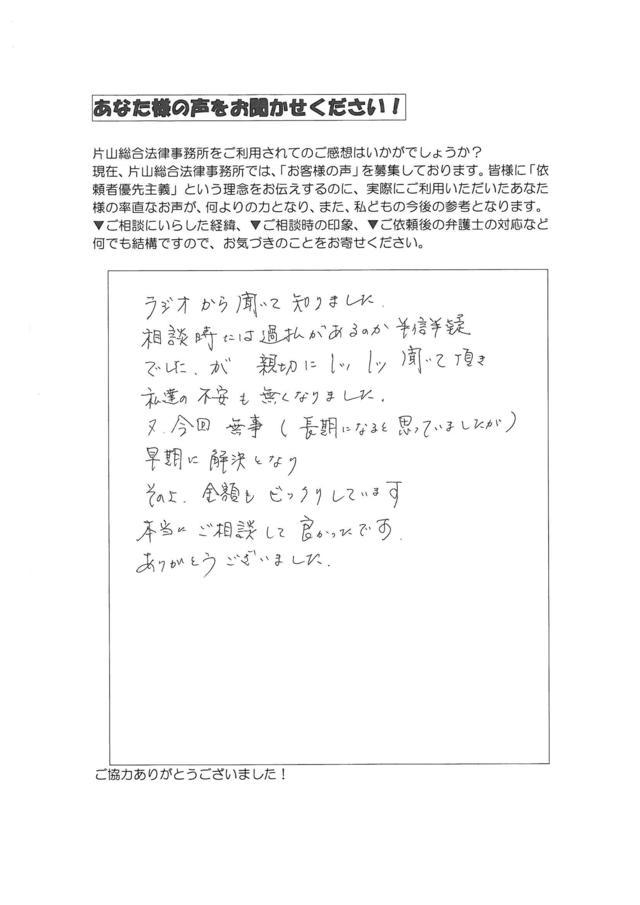 あなた様の声をお聞かせください！
片山総合法律事務所をご利用されてのご感想はいかがでしょうか？
現在、片山総合法律事務所では、「お客様の声」を募集しております。皆様に「依
頼者優先主義」という理念をお伝えするのに、実際にご利用いただいたあなた
様の率直なお声が、何よりの力となり、また、私どもの今後の参考となります。
▼ご相談にいらした経緯、▼ご相談時の印象、▼ご依頼後の弁護士の対応など
何でも結構ですので、お気づきのことをお寄せください。
ラジオから聞いて知りました.
相談時には過払があるのか半信半疑
でした.が 親切に 1ッ 1ッ 聞いて頂き
私達の不安も無くなりました.
又.今回 無事(長期になると思っていましたが)
早期に解決となり
その上.金額もビックリしています
本当にご相談して良かったです.
ありがとうございました.
ご協力ありがとうございました！